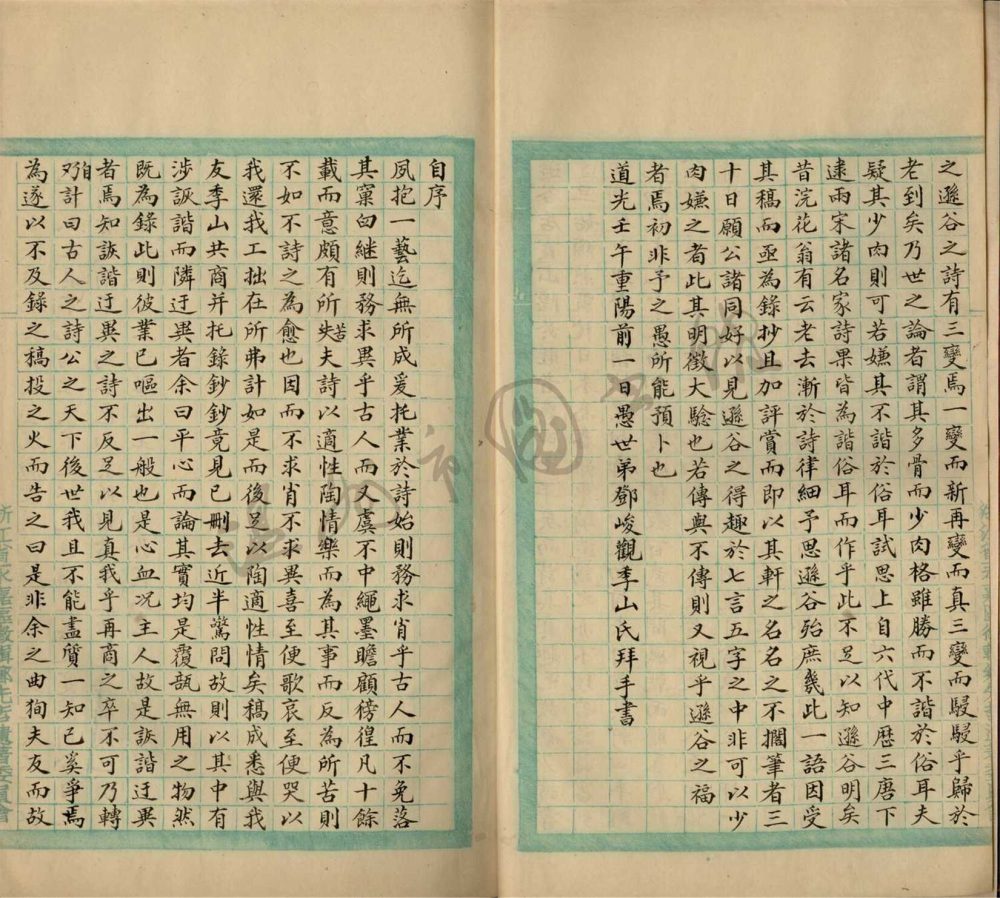 之遜谷之詩有三變焉一變而新再變而真三變而駸駸乎歸於
老到矣乃世之論者謂其多骨而少肉格雖勝而不諧於俗耳夫
疑其少肉則可若嫌其不諧於俗耳試思上自六代中歷三唐下
逮兩宋諸名家詩果皆為諧俗耳而作乎此不足以知遜谷明矣
昔浣花翁有云老去漸於詩律細予思遜谷殆庶幾此一語因受
其稿而亟為錄抄且加評賞而即以其軒之名名之不擱筆者三
十日願公諸同好以見遜谷之得趣於七言五字之中非可以少
肉嫌之者此其明徵大驗也若傳與不傳則又視乎遜谷之福
者焉初非予之愚所能預卜也
道光壬午重陽前一日愚世弟鄧峻觀季山氏拜手書
自序
夙抱一藝迄無所成爰托業於詩始則務求肖乎古人而不免落
其窠臼繼則務求異乎古人而又虞不中繩墨瞻顧徬徨凡十餘
載而意頗有所失苦夫詩以適性陶情樂而為其事而反為所苦則
不如不詩之為愈也因而不求肖不求異喜至便歌哀至便哭以
我還我工拙在所弗計如是而後足以陶適性情矣稿成悉與我
友季山共商并托錄鈔鈔竟見已刪去近半驚問故則以其中有
涉詼諧而隣迂異者余曰平心而論其實均是覆瓿無用之物然
既為錄此則彼業已嘔出一般也是心血況主人故是詼諧迂異
者焉知詼諧迂異之詩不反足以見真我乎再商之卒不可乃轉
自計曰古人之詩公之天下後世我且不能盡質一知己奚爭焉
為遂以不及錄之稿投之火而告之曰是非余之曲狥夫友而故